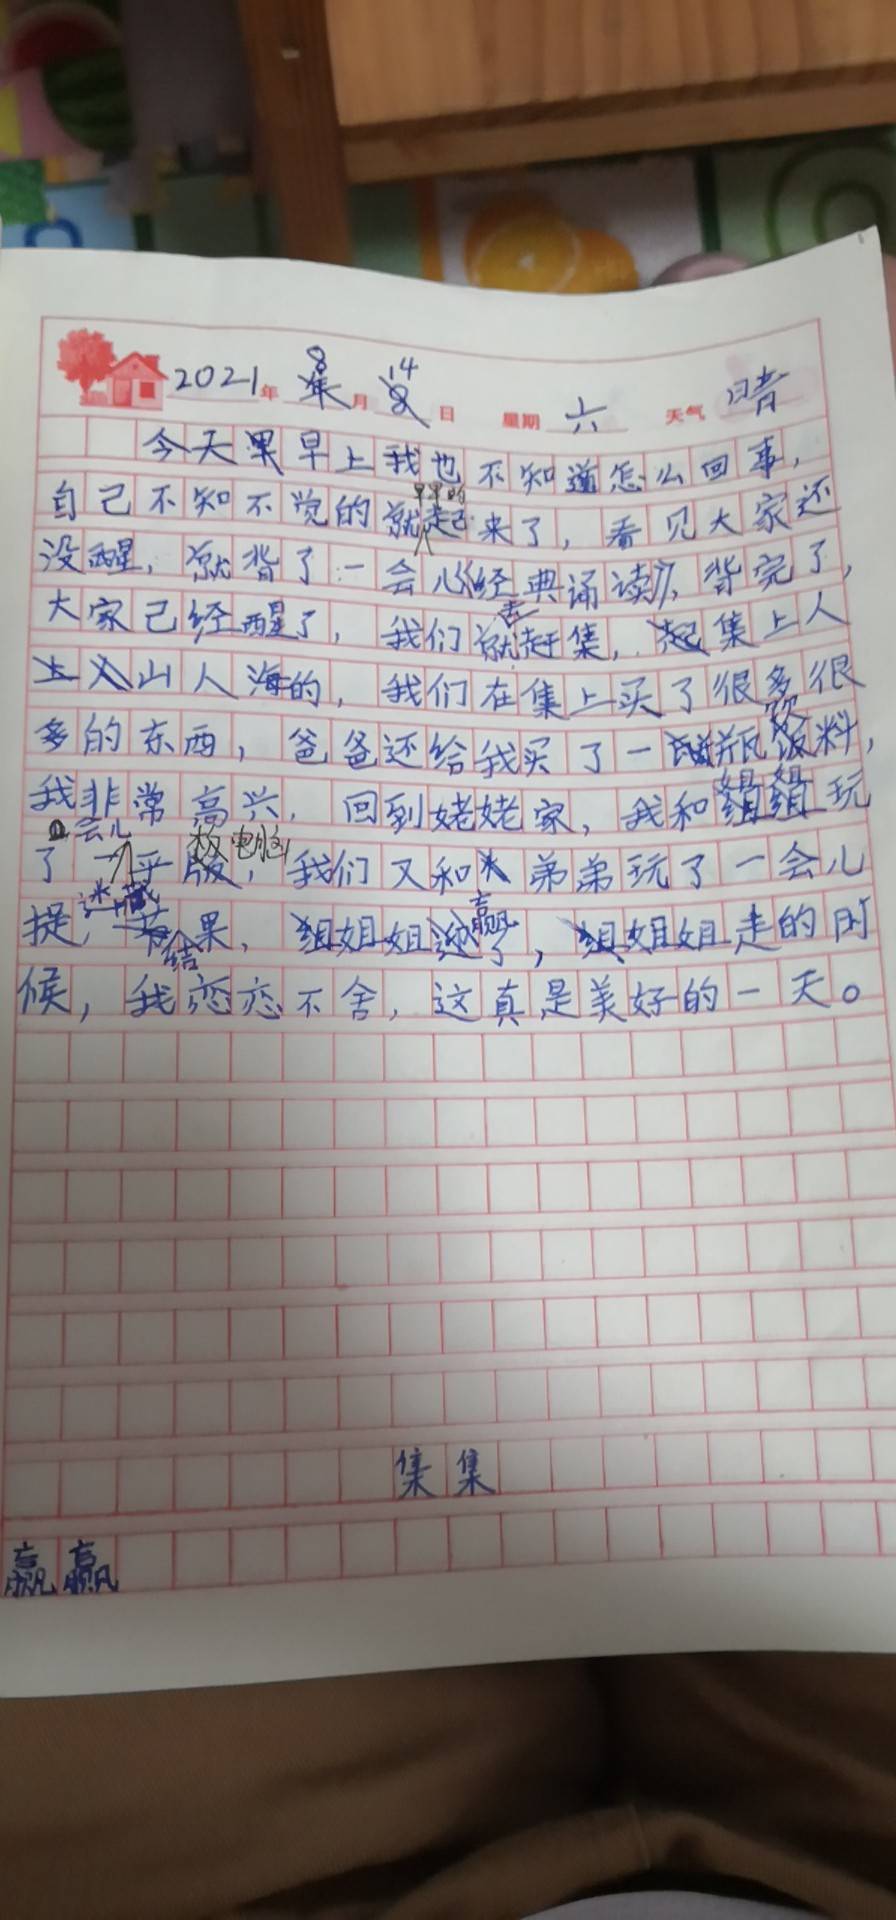 2021年 8月 14日 星期 六 天气 晴
今天早上我也不知道怎么回事，
自己不知不觉的就早早的起来了，看见大家还
没醒，就背了一会儿《经典诵读》，背完了，
大家已经醒了，我们就去赶集，集上人
山人海的，我们在集上买了很多很
多的东西，爸爸还给我买了一瓶饮料，
我非常高兴，回到姥姥家，我和姐姐玩
了一会儿平板电脑，我们又和弟弟玩了一会儿
捉迷藏，结果，姐姐赢了，姐姐走的时
候，我恋恋不舍，这真是美好的一天。
集集
赢赢